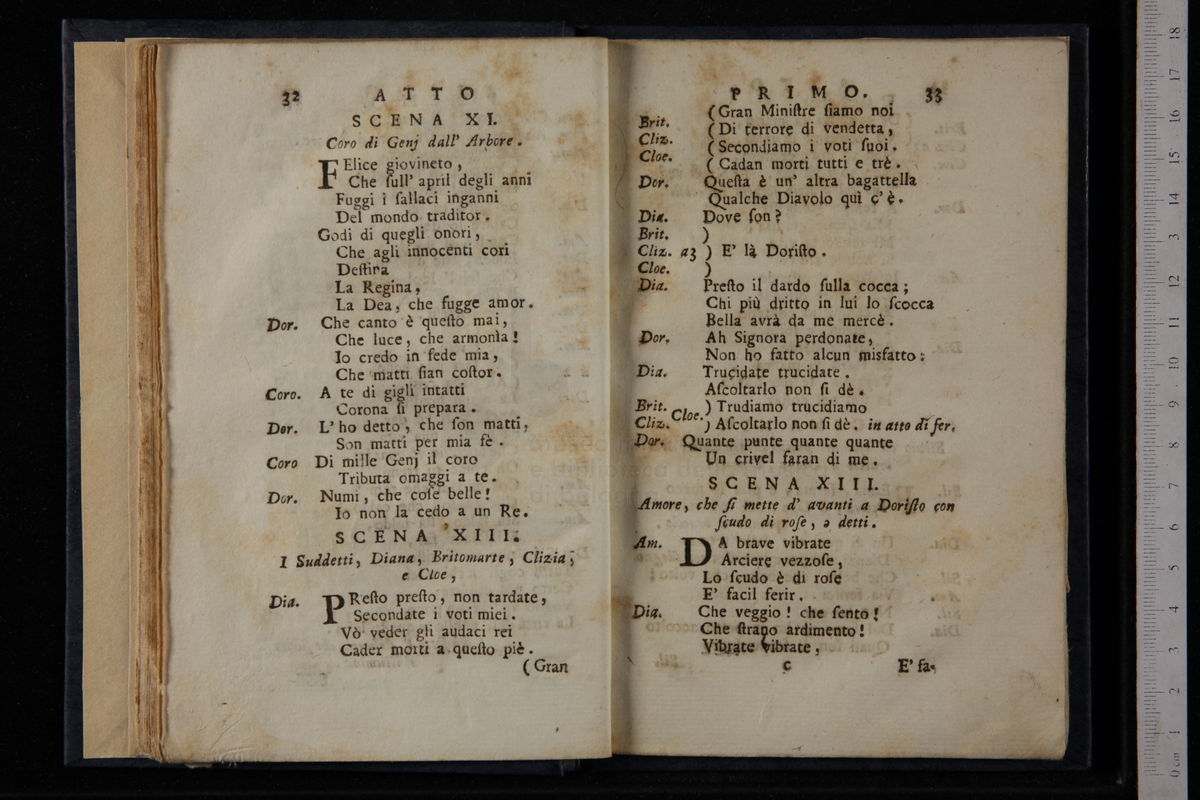 32 ATTO
SCENA XI.
Coro di Genj dall' Arbore.
FElice giovineto,
Che ſull' april degli anni
Fuggi i fallaci inganni
Del mondo traditor.
Godi di quegli onori,
Che agli innocenti cori
Deſtina
La Regina,
La Dea, che fugge amor.
Dor. Che canto è queſto mai,
Che luce, che armonìa!
Io credo in fede mia,
Che matti ſian coſtor.
Coro. A te di gigli intatti
Corona ſi prepara.
Dor. L' ho detto, che ſon matti,
Son matti per mia fè.
Coro Di mille Genj il coro
Tributa omaggi a te.
Dor. Numi, che coſe belle!
Io non la cedo a un Re.
SCENA XIII.
I Suddetti, Diana, Britomarte, Clizia,
e Cloe,
Dia. PReſto preſto, non tardate,
Secondate i voti miei.
Vò veder gli audaci rei
Cader morti a queſto piè.
(Gran
PRIMO. 33
(Gran Miniſtre ſiamo noi
Brit. (Di terrore di vendetta,
Cliz. (Secondiamo i voti ſuoi.
Cloe. (Cadan morti tutti e trè.
Dor. Queſta è un' altra bagattella
Qualche Diavolo quì c'è.
Dia. Dove ſon?
Brit. )
Cliz. a3 ) E' là Doriſto.
Cloe. )
Dia. Preſto il dardo ſulla cocca;
Chi più dritto in lui lo ſcocca
Bella avrà da me mercè.
Dor. Ah Signora perdonate,
Non ho fatto alcun misfatto:
Dia. Trucidate trucidate.
Aſcoltarlo non ſi dè.
Brit. ) Trudiamo trucidiamo
Cliz. Cloe. ) Aſcoltarlo non ſi dè. in atto di fer.
Dor. Quante punte quante quante
Un crivel faran di me.
SCENA XIII.
Amore, che ſi mette d' avanti a Doriſto con
ſcudo di roſe, e detti.
Am. DA brave vibrate
Arciere vezzoſe,
Lo ſcudo è di roſe
E' facil ferir.
Dia. Che veggio! che ſento!
Che ſtrano ardimento!
Vibrate vibrate,
C E' fa-